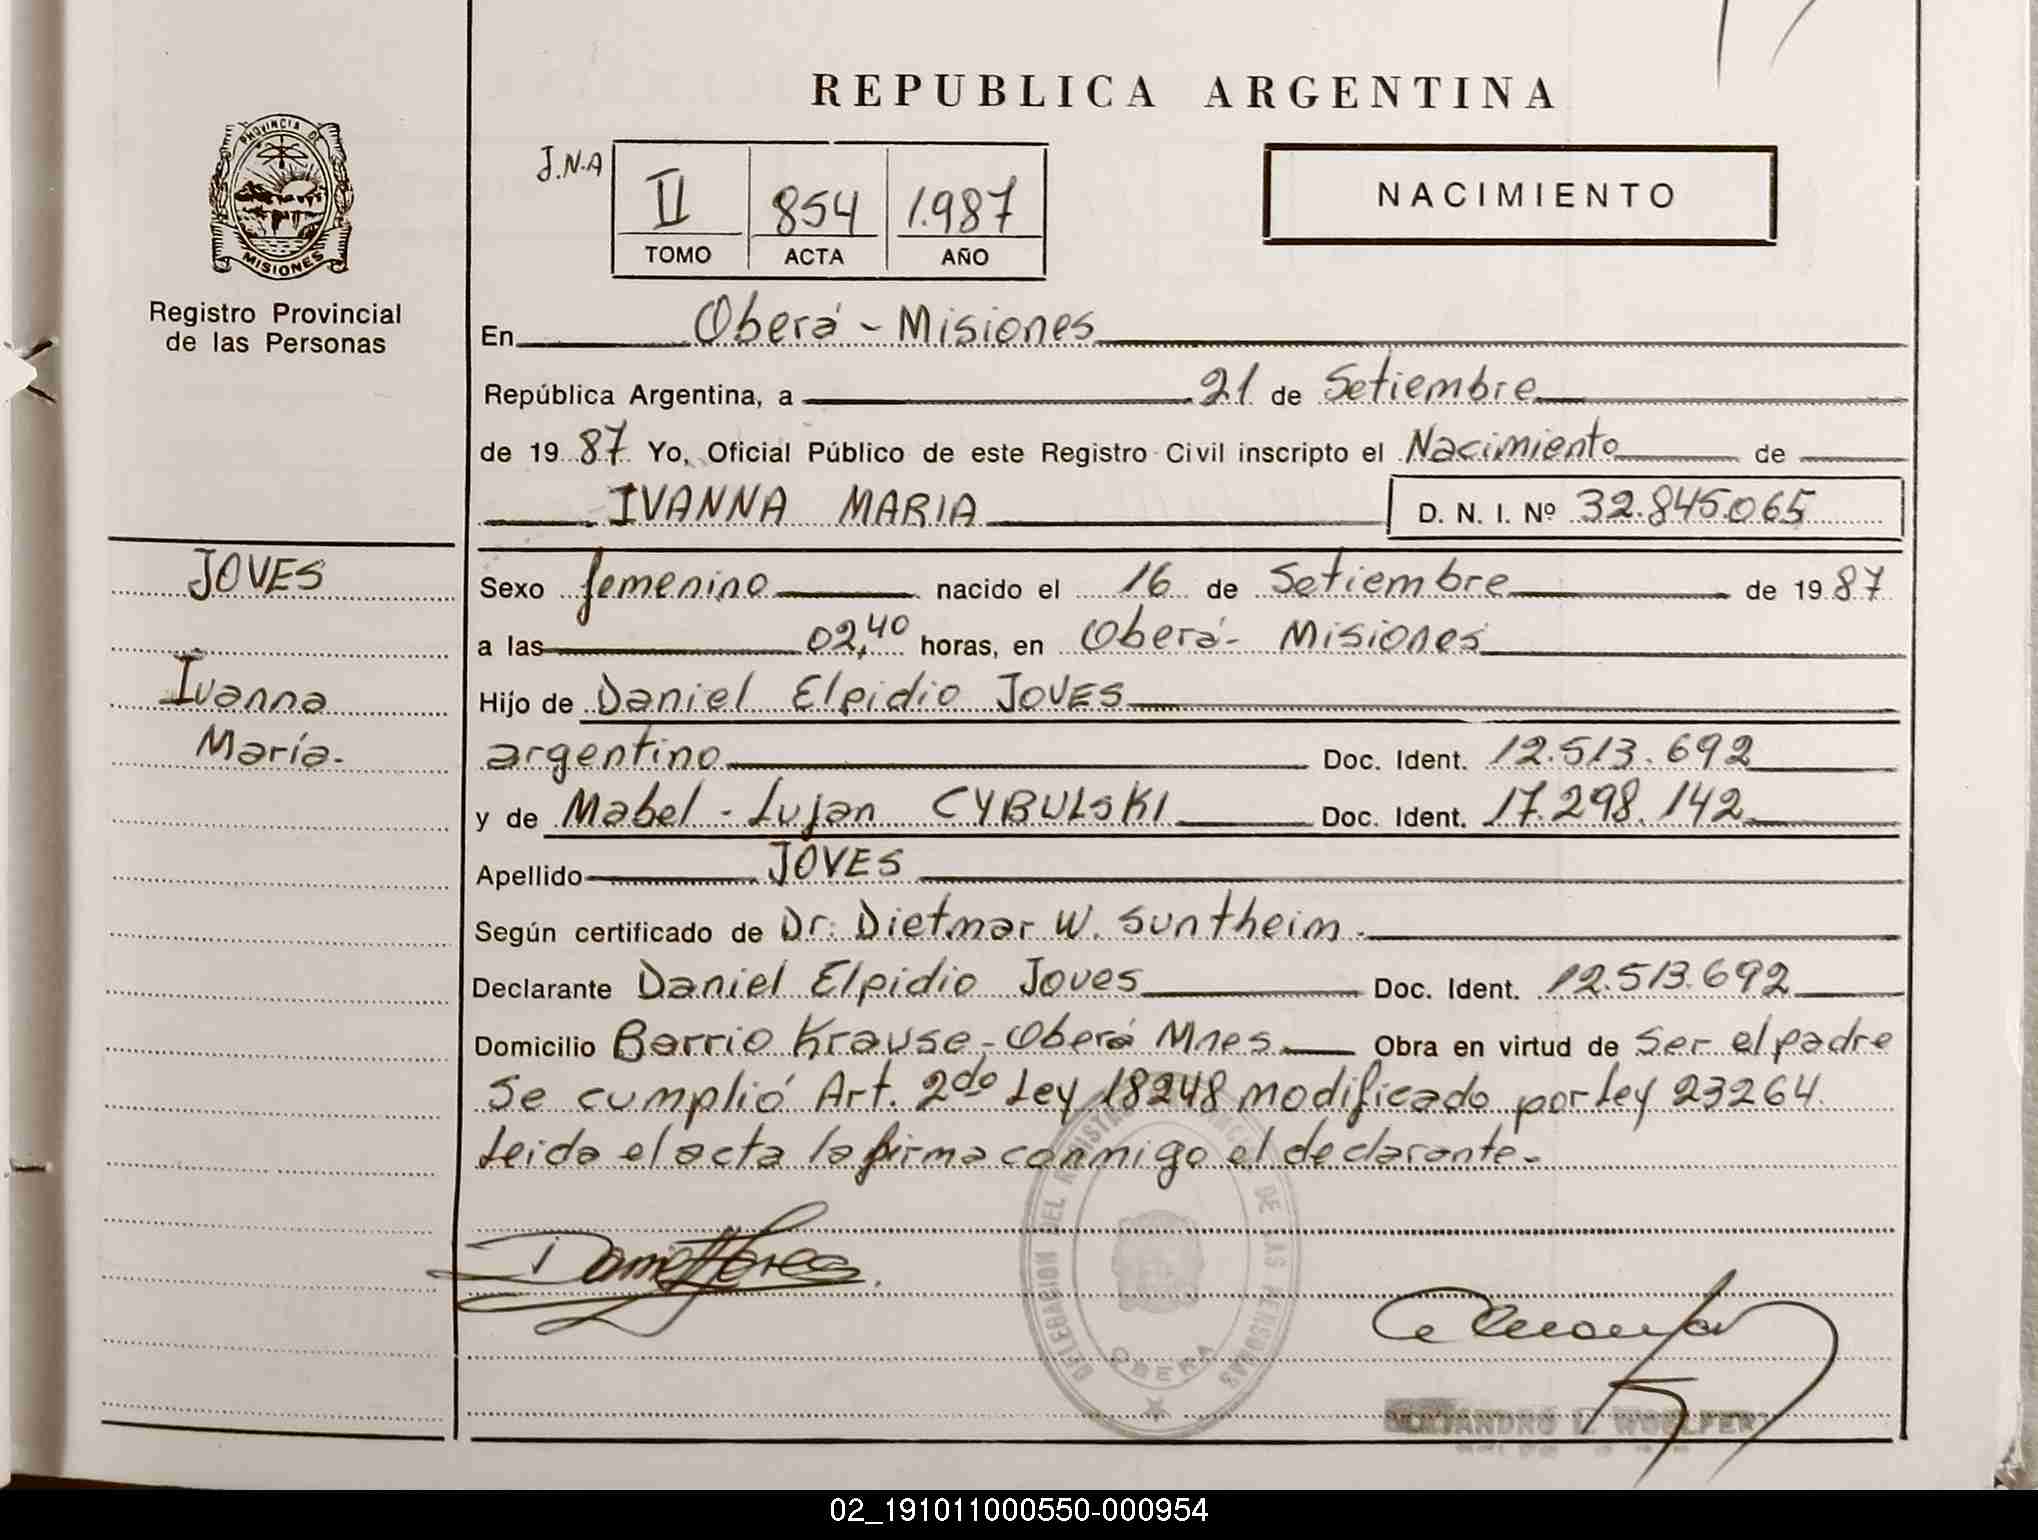 REPUBLICA ARGENTINA
PROVINCIA DE
MISIONES
Registro Provincial
de las Personas
J.N.A
II 854 1.987
TOMO ACTA AÑO
NACIMIENTO
En Oberá - Misiones
República Argentina, a 21 de Setiembre
de 1987 Yo, Oficial Público de este Registro Civil inscripto el Nacimiento de
IVANNA MARIA D. N. I. Nº 32.845.065
JOVES
Ivanna
María.-
Sexo femenino nacido el 16 de Setiembre de 1987
a las 02,40 horas, en Oberá - Misiones
Hijo de Daniel Elpidio JOVES
argentino Doc. Ident. 12.513.692
y de Mabel - Lujan CYBULSKI Doc. Ident. 17.298.142
Apellido JOVES
Según certificado de Dr. Dietmar W. Suntheim.
Declarante Daniel Elpidio Joves Doc. Ident. 12.513.692
Domicilio Barrio Krause - Oberá Mnes Obra en virtud de Ser el padre
Se cumplió Art. 2do Ley 18248 modificado por Ley 23264.
Leida el acta la firma conmigo el declarante.-
DE LAS PERSONAS
OBERA
02_191011000550-000954